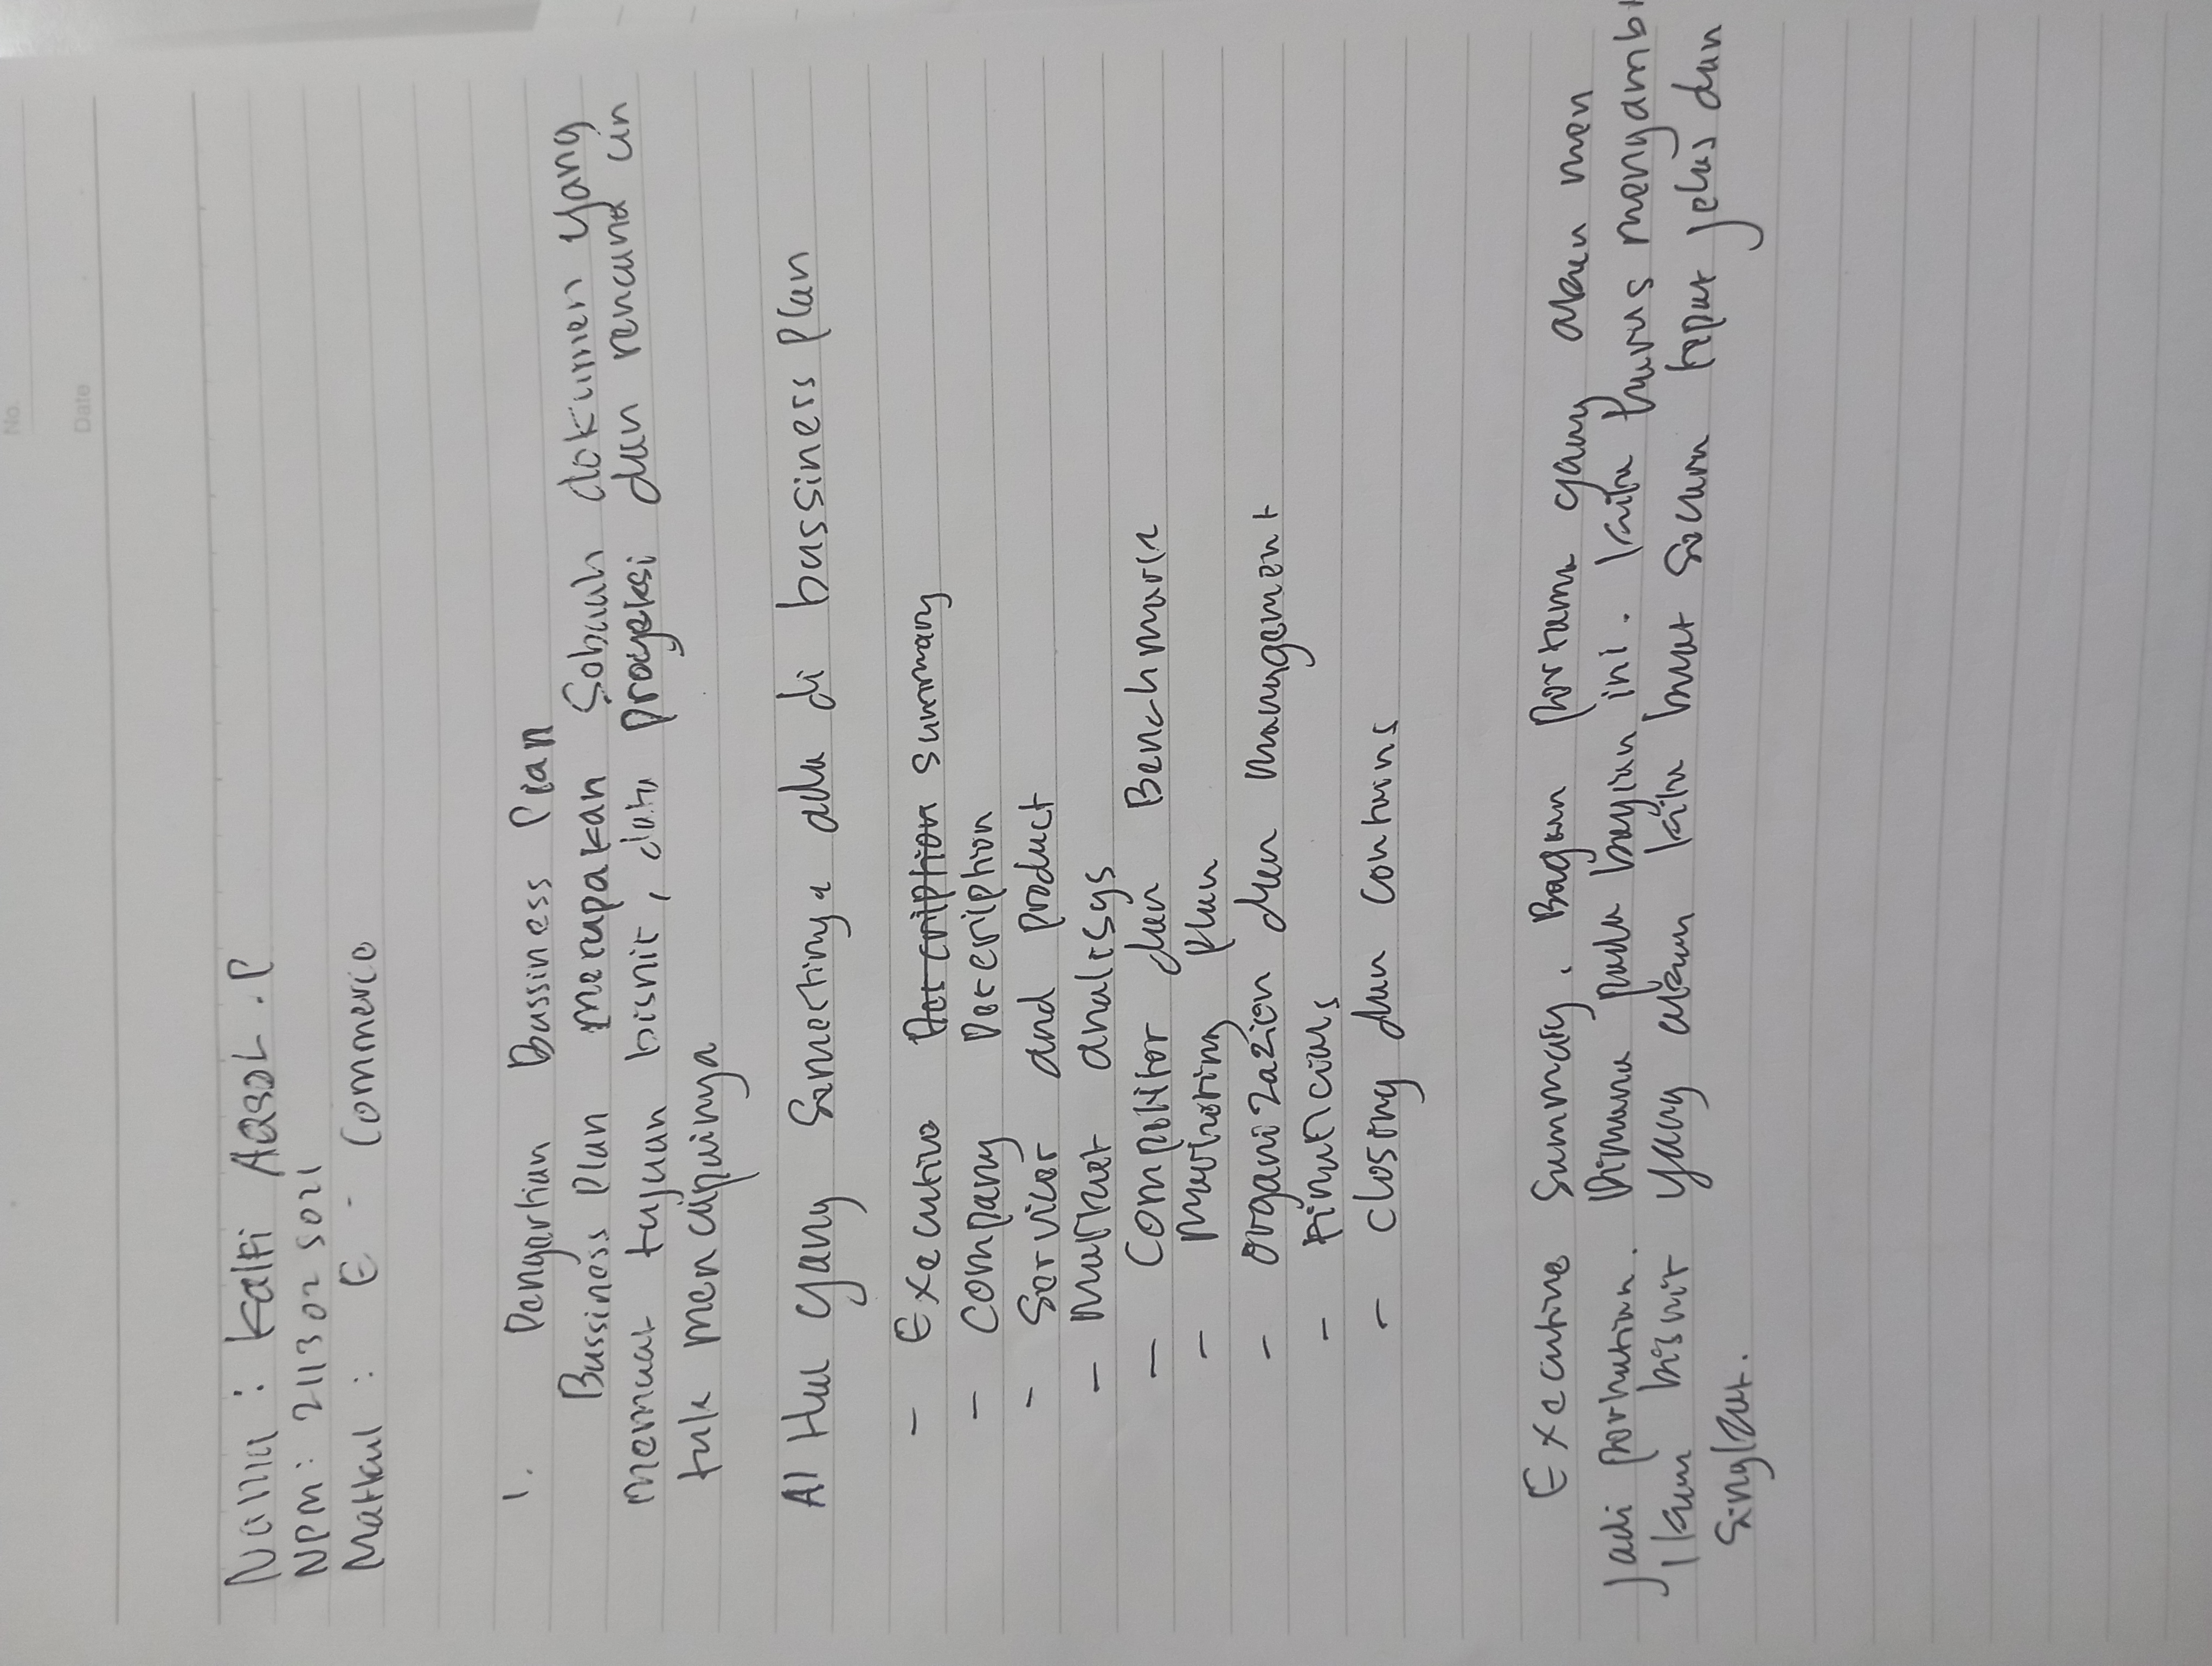 No.
Date
Nama : Kalfi Aqsol . P
NPM : 2113025021
Matkul : E - Commerce
1. Pengertian Bussiness Plan
Bussiness Plan merupakan Sebuah dokumen yang
memuat tujuan bisnis, data proyeksi dan rencana un
tuk mencapainya
Al Hal yang Semestinya ada di bussiness plan
- Executive summary
- Company Description
- Services and product
- Market analisys
- Competitor dan Benchmark
- Marketing plan
- Organizazion dan management
- Financials
- Closing dan contains
Executive Summary. Bagian pertama yang akan men
jadi perhatian. Dimana pada bagian ini. kita harus mengambi
l kan bisnis yang akan kita buat secara tepat jelas dan
Singkat.